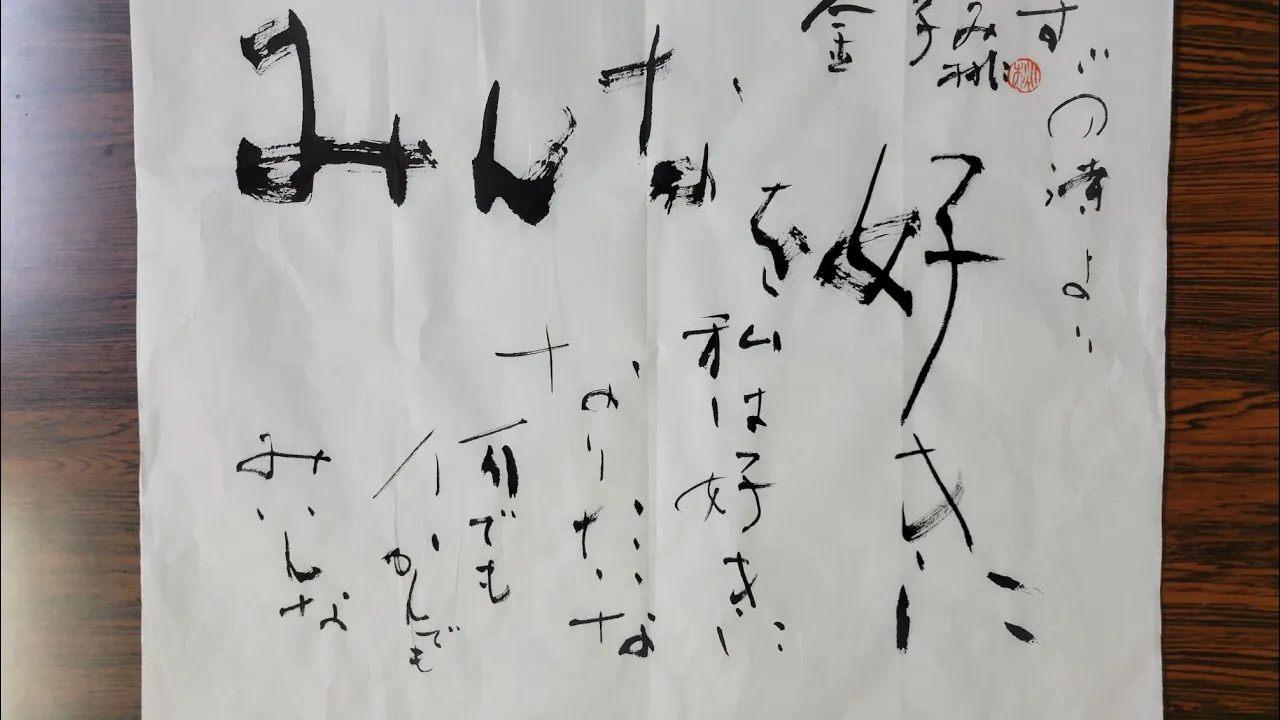 みんなを好きに
私は好きに
なりたいな
何でも
かんでも
みいんな
金子みすゞの詩より